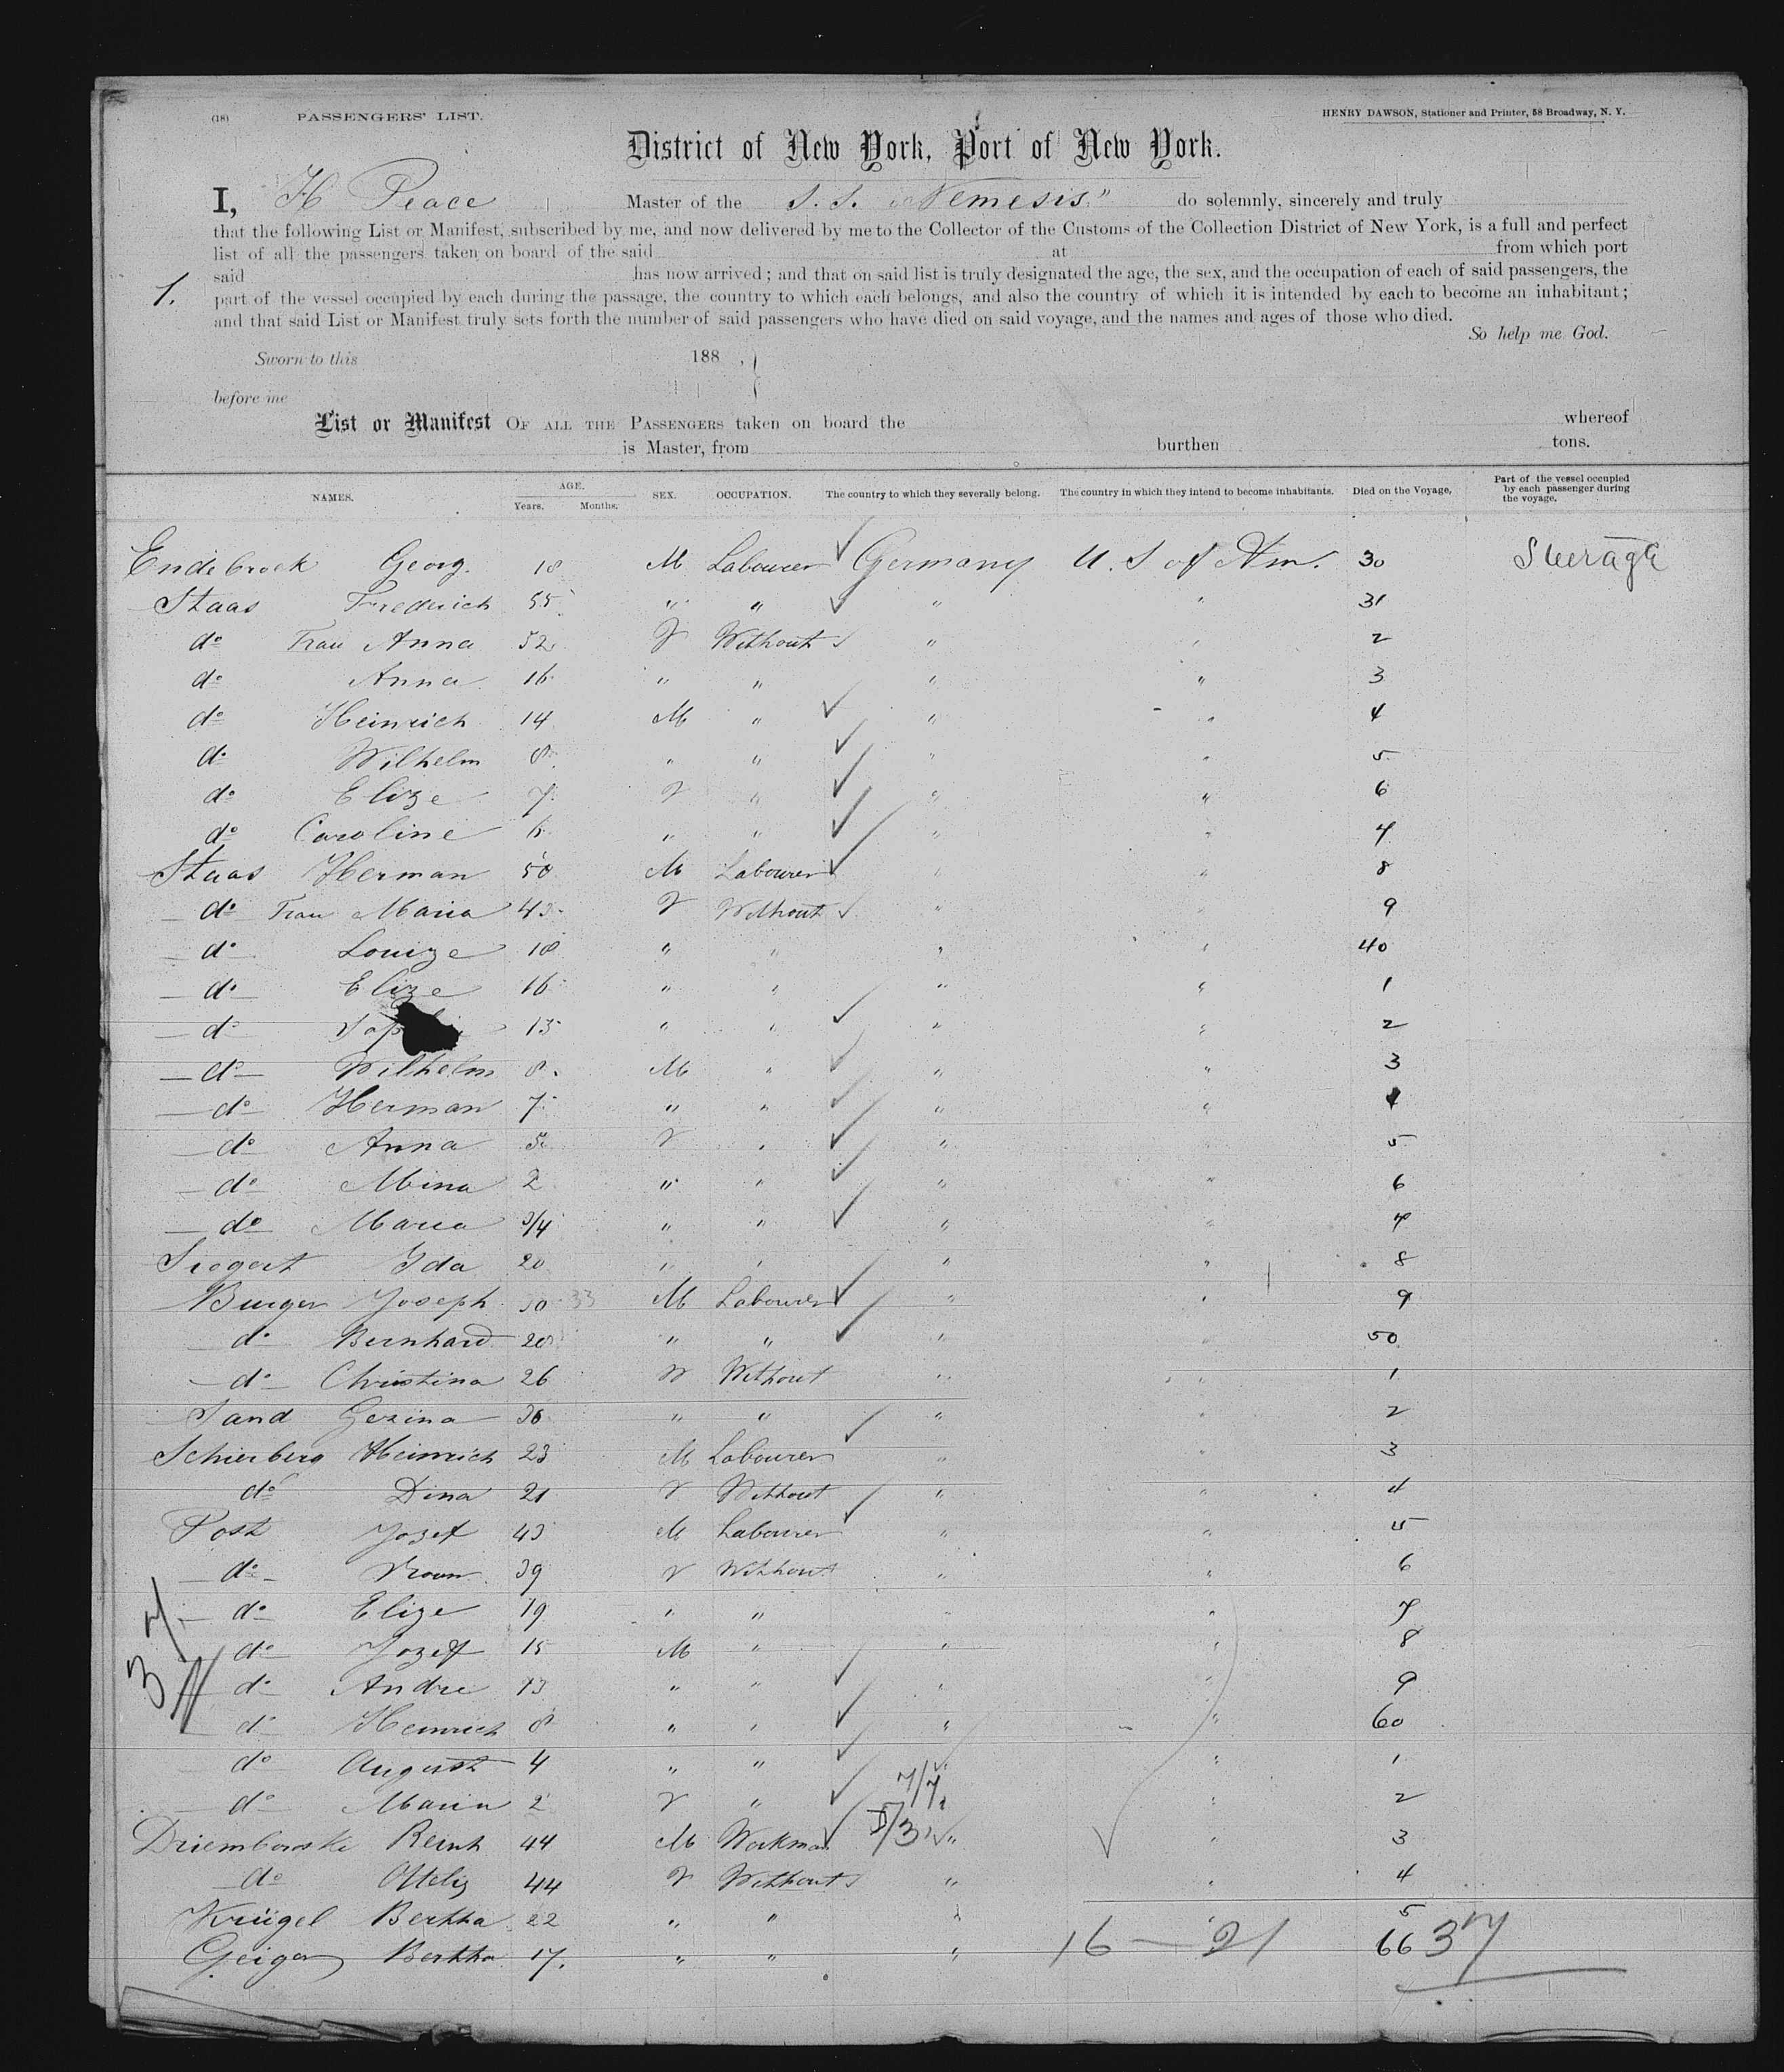 (18) PASSENGERS' LIST. HENRY DAWSON, Stationer and Printer, 58 Broadway, N. Y.
District of New York, Port of New York.
I, H Peace Master of the S. S. "Nemesis" do solemnly, sincerely and truly
that the following List or Manifest, subscribed by me, and now delivered by me to the Collector of the Customs of the Collection District of New York, is a full and perfect
list of all the passengers taken on board of the said at from which port
said has now arrived; and that on said list is truly designated the age, the sex, and the occupation of each of said passengers, the
1. part of the vessel occupied by each during the passage, the country to which each belongs, and also the country of which it is intended by each to become an inhabitant;
and that said List or Manifest truly sets forth the number of said passengers who have died on said voyage, and the names and ages of those who died.
So help me God.
Sworn to this 188 ,
before me
List or Manifest OF ALL THE PASSENGERS taken on board the whereof
is Master, from burthen tons.
NAMES. AGE. Years. Months. SEX. OCCUPATION. The country to which they severally belong. The country in which they intend to become inhabitants. Died on the Voyage, Part of the vessel occupied by each passenger during the voyage.
Endebrock Georg. 18 M Labourer Germany U. S of Am. 30 Steerage
Staas Frederich 55 " " " " 31
do Frau Anna 52 F Without " " 2
do Anna 16 " " " " 3
do Heinrich 14 M " " " 4
do Wilhelm 8 " " " " 5
do Elize 7 F " " " 6
do Caroline 6 " " " " 7
Staas Herman 50 M Labourer " " 8
do Frau Maria 43 F Without " " 9
do Louize 18 " " " " 40
do Elize 16 " " " " 1
do 13 " " " " 2
do Wilhelm 8 M " " " 3
do Herman 7 " " " " 4
do Anna 5 F " " " 5
do Mina 2 " " " " 6
do Maria 3/4 " " " " 7
Siegert Ida 20 " " " " 8
Burger Joseph 30 33 M Labourer " " 9
do Bernhard 28 " " " " 50
do Christina 26 F Without " " 1
Sand Gezina 36 " " " " 2
Schierberg Heinrich 23 M Labourer " " 3
do Dina 21 F Without " " 4
Post Jozef 43 M Labourer " " 5
do 39 F Without " " 6
do Elize 19 " " " " 7
do Jozef 15 M " " " 8
do Andre 13 " " " " 9
do Heinrich 8 " " " " 60
do August 4 " " " " 1
do Maria 2 F " " " 2
Driembowski 44 M Workman " " 3
do 44 F Without " " 4
Krügel Bertha 22 " " " " 5
Geiger Bertha 17. " " " 16 — 21 66 37